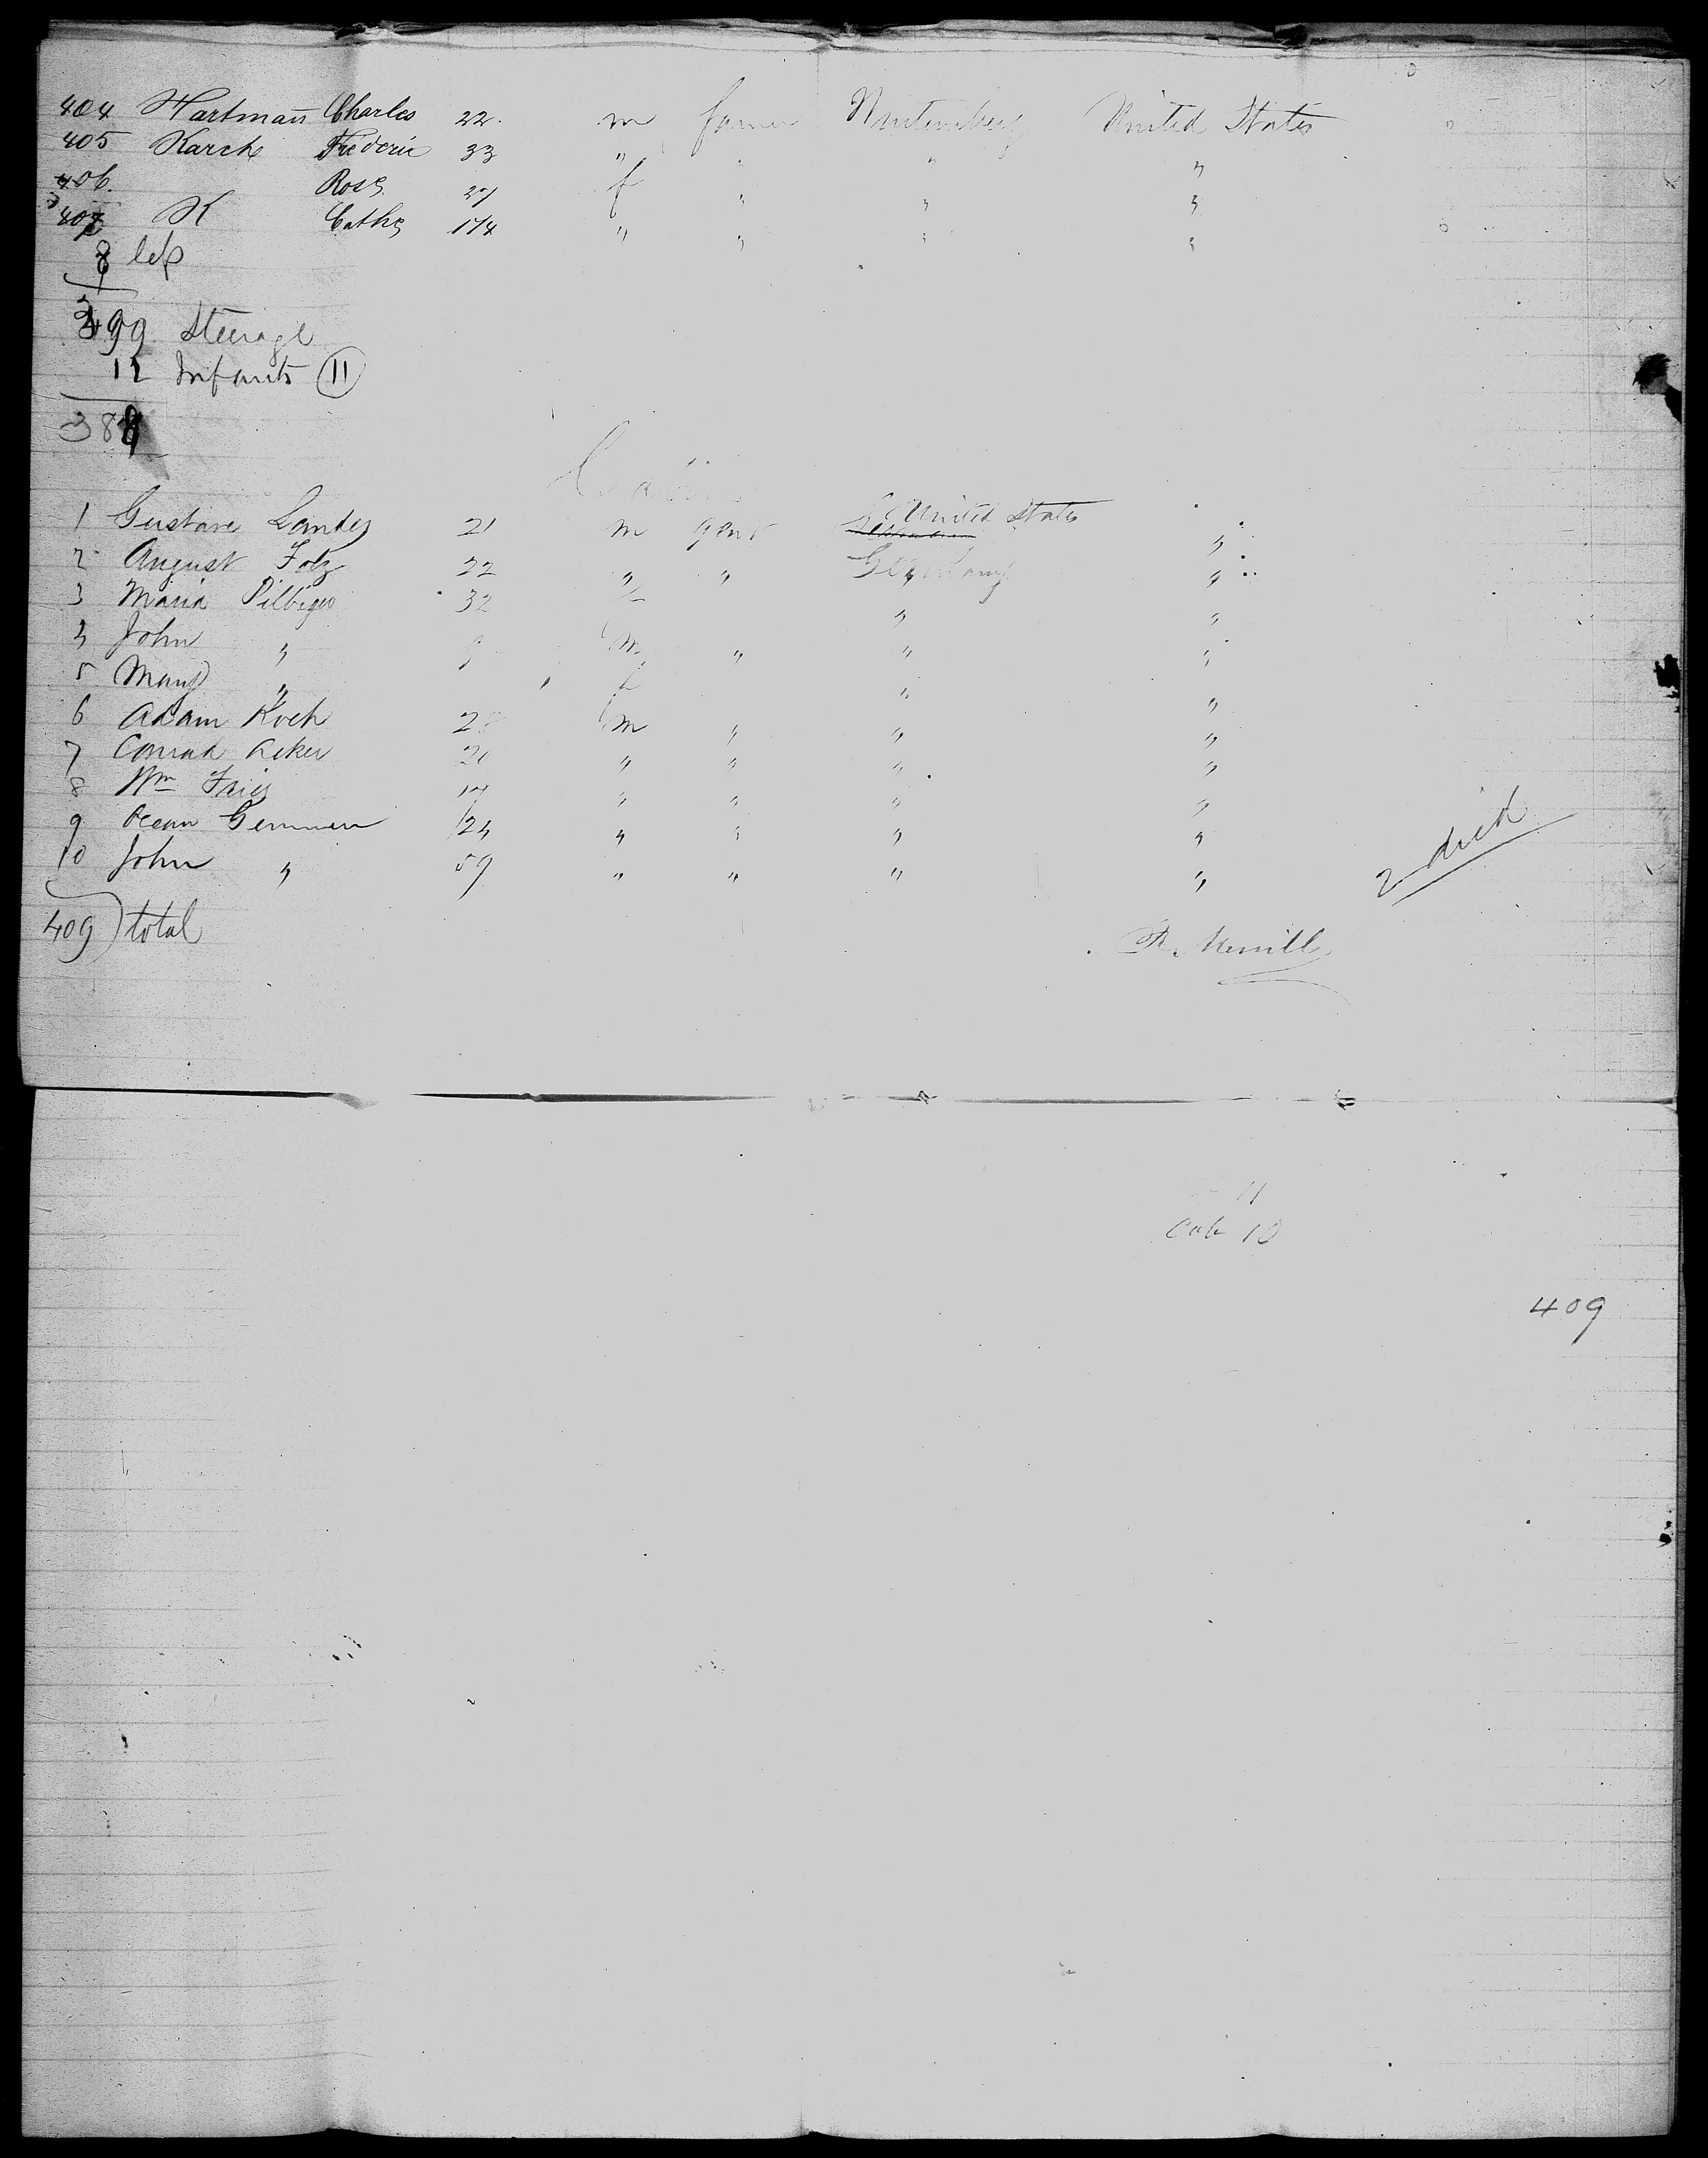 404 Hartman Charles 22 m farmer Wurtemberg United States
405 Karch Frederic 33 " " " "
406. Rosa 27 f " " "
407 K Cath 1/4 " " " "
8 less
399 Steerage
12 Infants 11
388
Cabin
1 Gustave Landes 21 m gent United States "
2 August Folz 22 " " Germany "
3 Maria 32 f " "
4 John " 9 m " " "
5 " f " "
6 Adam Koch m " " "
7 Conrad Acker 20 " " " "
8 Wm Fries " " " "
9 24 " " " "
10 John " 59 " " " "
2 died
409 total
R. Merrill
11
Cab 10
409